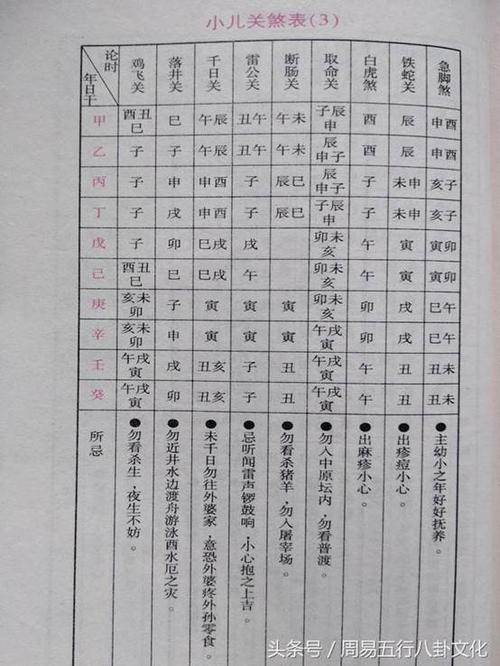 小儿关煞表(3)
论时 年日干 鸡飞关 落井关 千日关 雷公关 断肠关 取命关 白虎煞 铁蛇关 急脚煞
甲 酉丑巳 巳 午辰 丑午 午未 子辰申 酉 辰 申酉
乙 子 子 午辰 丑午 午未 辰申子 酉 辰 申酉
丙 子 申 申酉 子 辰巳 子辰申 子 未申 亥子
丁 子 戌 申酉 子 辰巳 子辰申 子 未申 亥子
戊 子 卯 巳戌 戌 卯未亥 午 寅 寅卯
己 酉丑巳 巳 巳戌 午 卯未亥 午 寅 寅卯
庚 亥未卯 子 寅 寅 寅 卯未亥 卯 戌 巳午
辛 亥未卯 申 寅 寅 寅 午戌寅 卯 戌 巳午
壬 午戌寅 戌 丑亥 子 丑 午戌寅 午 丑 丑未
癸 午戌寅 卯 丑亥 子 丑 午戌寅 午 丑 丑未
所忌
●勿看杀生，夜生不妨。
●勿近井水边渡舟游泳酉水厄之灾。
●未千日勿往外婆家，意恐外婆疼外孙零食。
●忌听闻雷声锣鼓响，小心抱之上吉。
●勿看杀猪羊，勿入屠宰场。
●勿入中原坛内，勿看普渡。
●出麻疹小心。
●出疹痘小心。
●主幼小之年好好抚养。
头条号/周易五行八卦文化